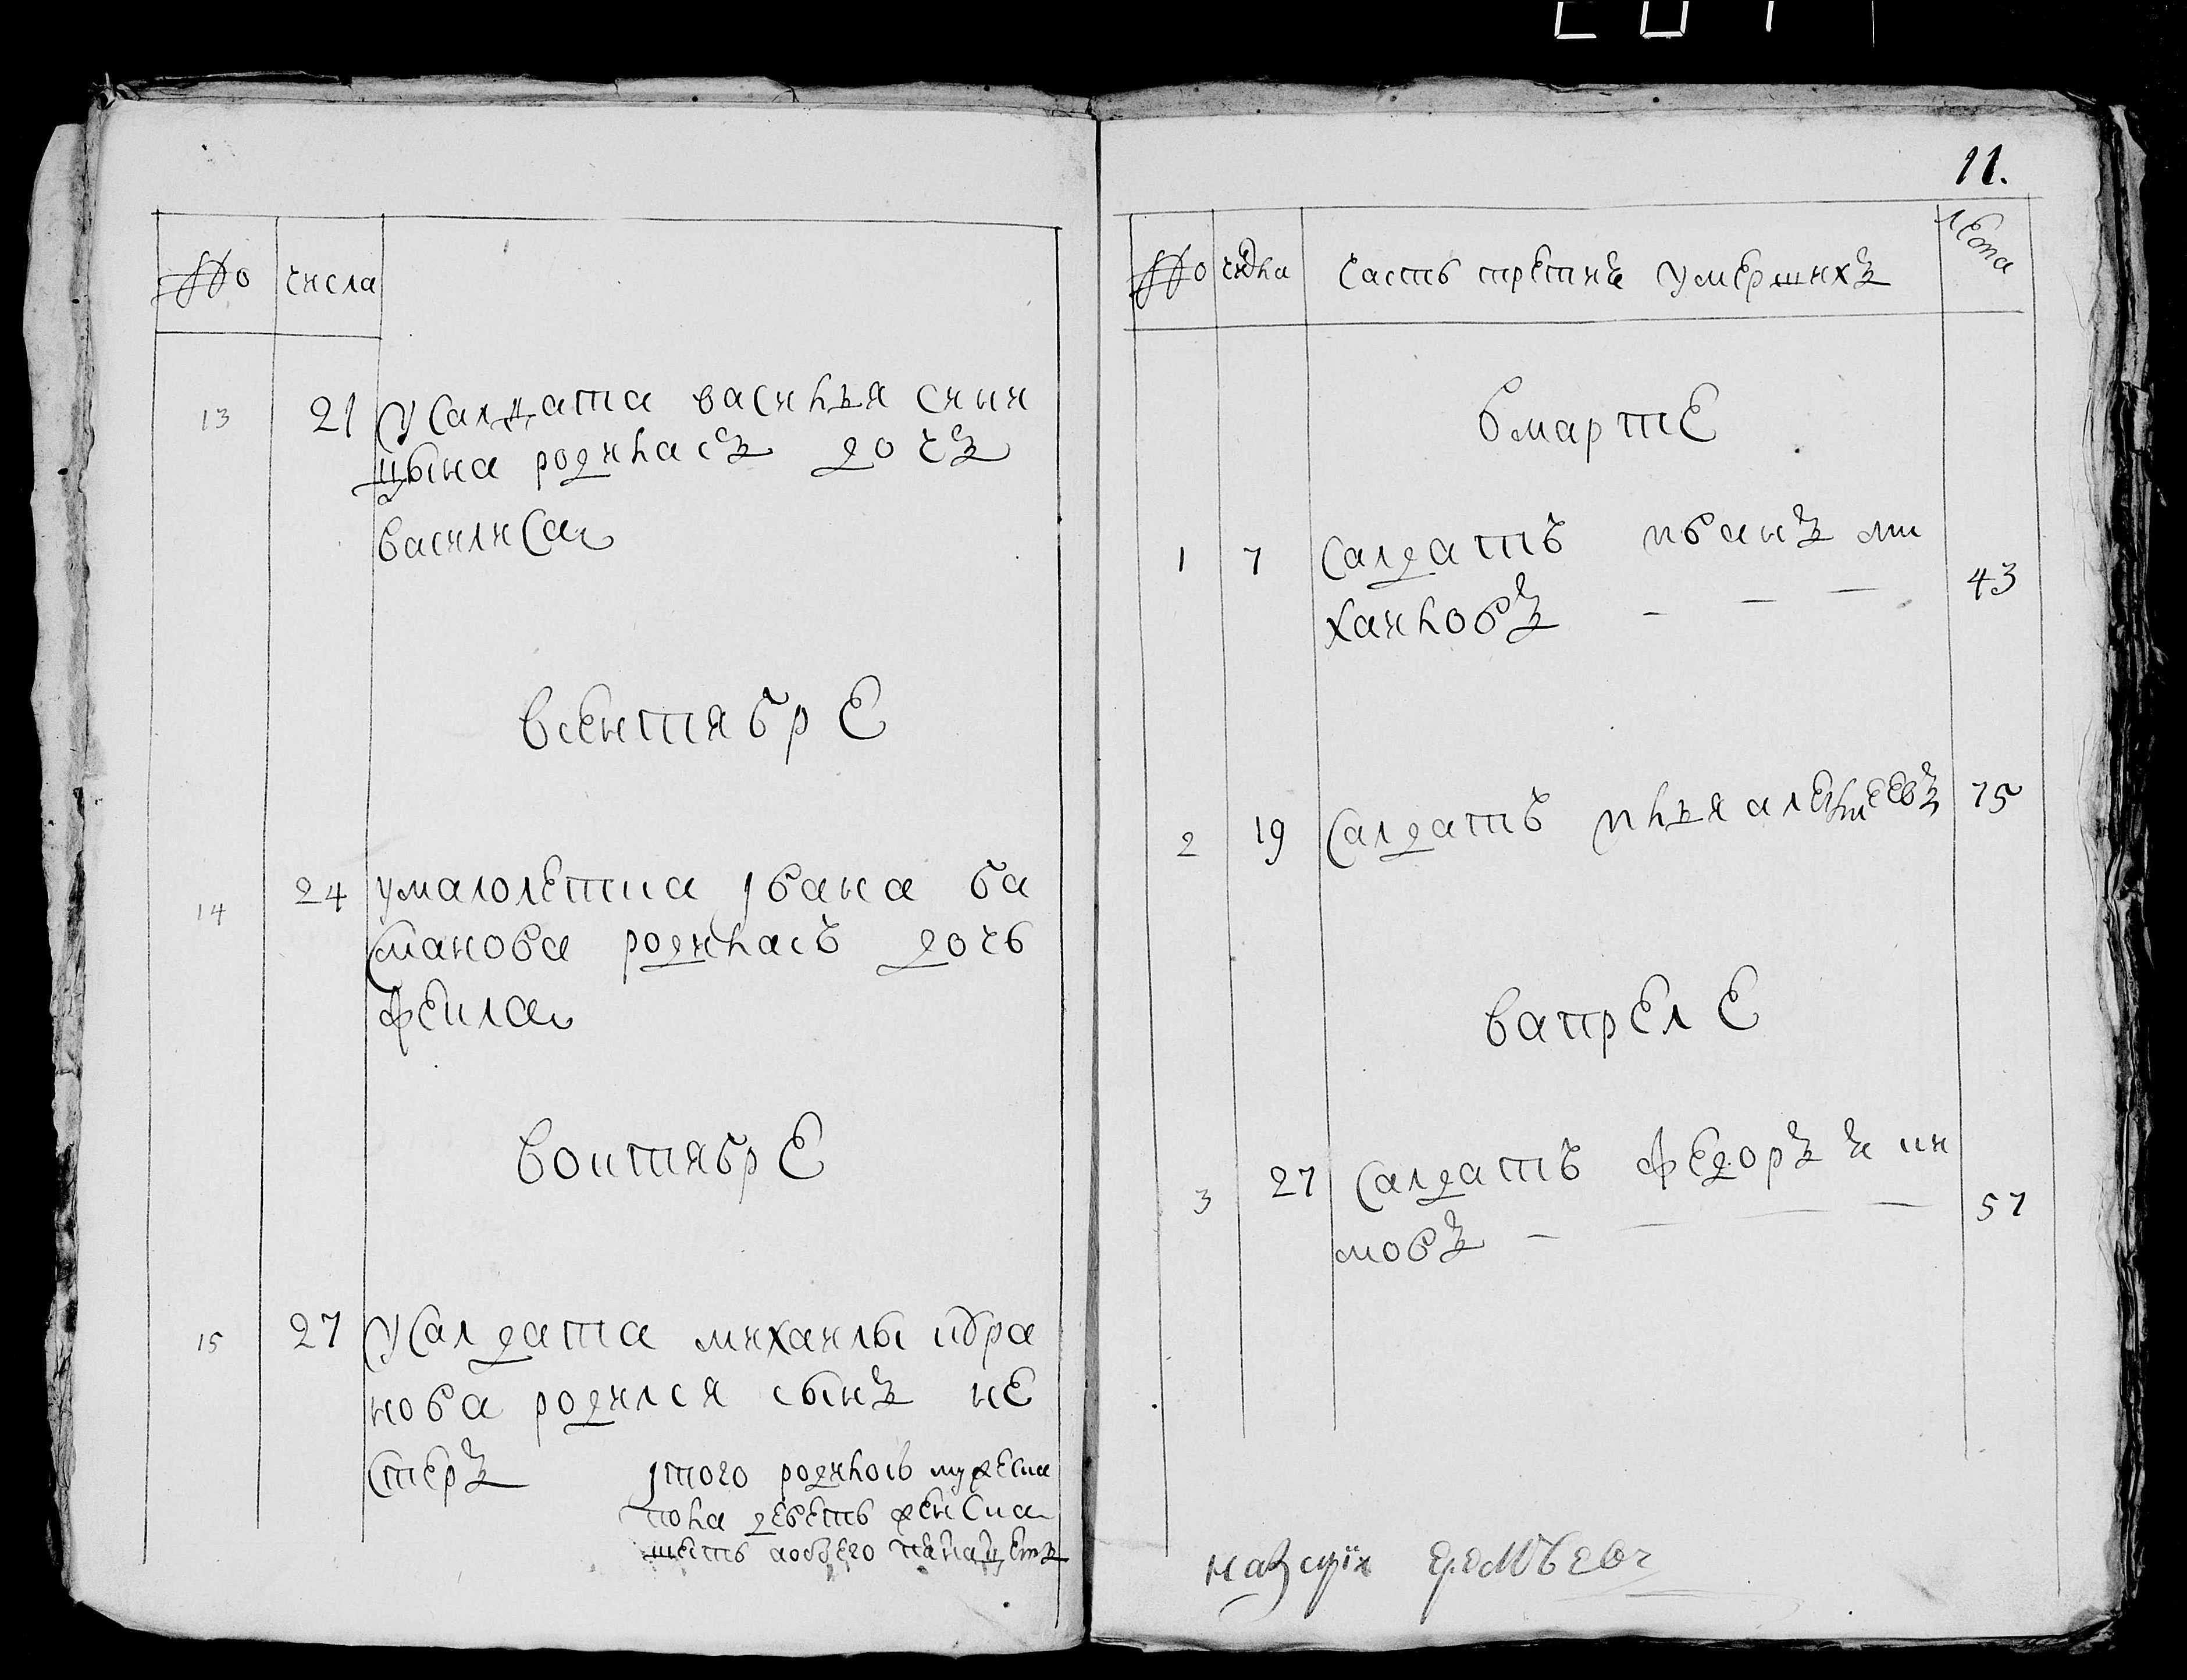 № числа
13 21 У салдата василья сини
цына родилась дочь
василиса
всентябре
14 24 умалолетка ивана ба
танова родилась дочь
фекла
воктябре
15 27 У салдата михаилы
нова родился сынъ не
стеръ
итого родилось мужеска
пола деветь женска
шесть аобщего
11.
№ числа часть третия умершихъ лета
вмарте
1 7 Салдатъ иванъ ми
хаиловъ — — — 43
2 19 Салдатъ илья алексеевъ 75
вапреле
3 27 Салдатъ федоръ
мовъ — — — — 57